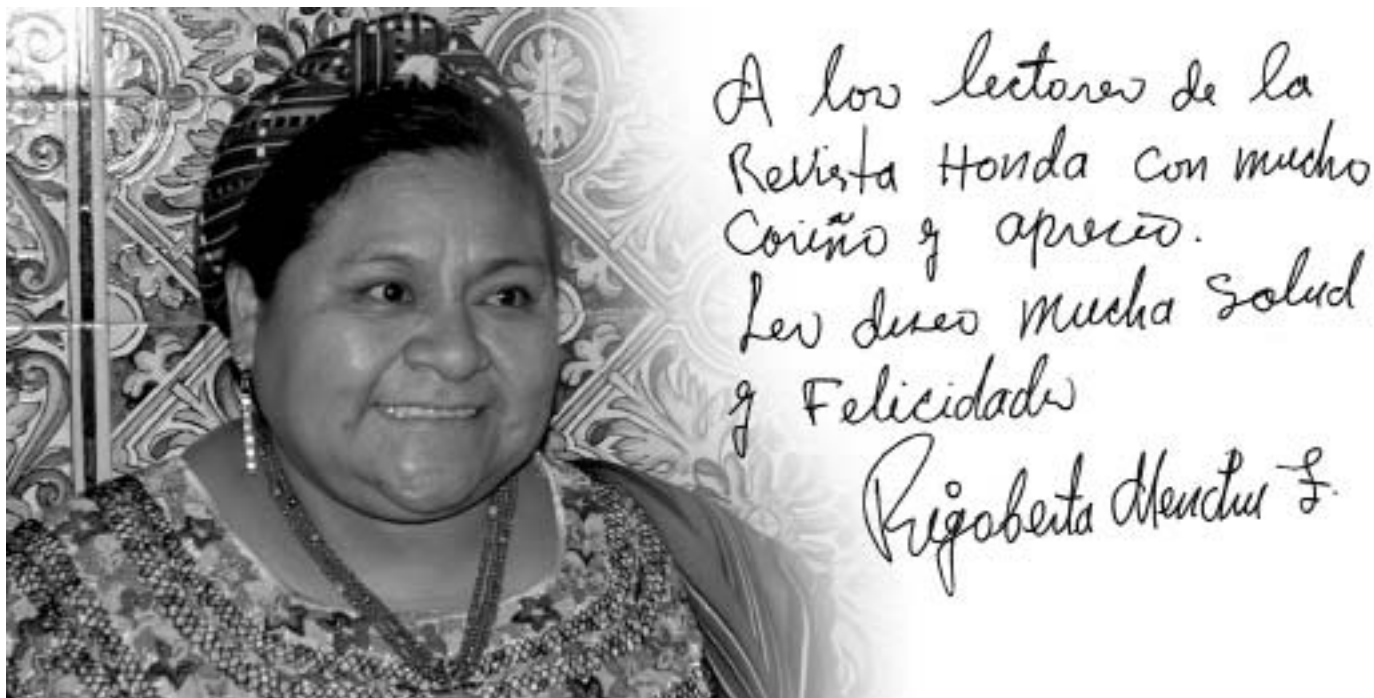 A los lectores de la
Revista Honda con mucho
Cariño y aprecio.
Les deseo mucha salud
y Felicidades
Rigoberta Menchu T.